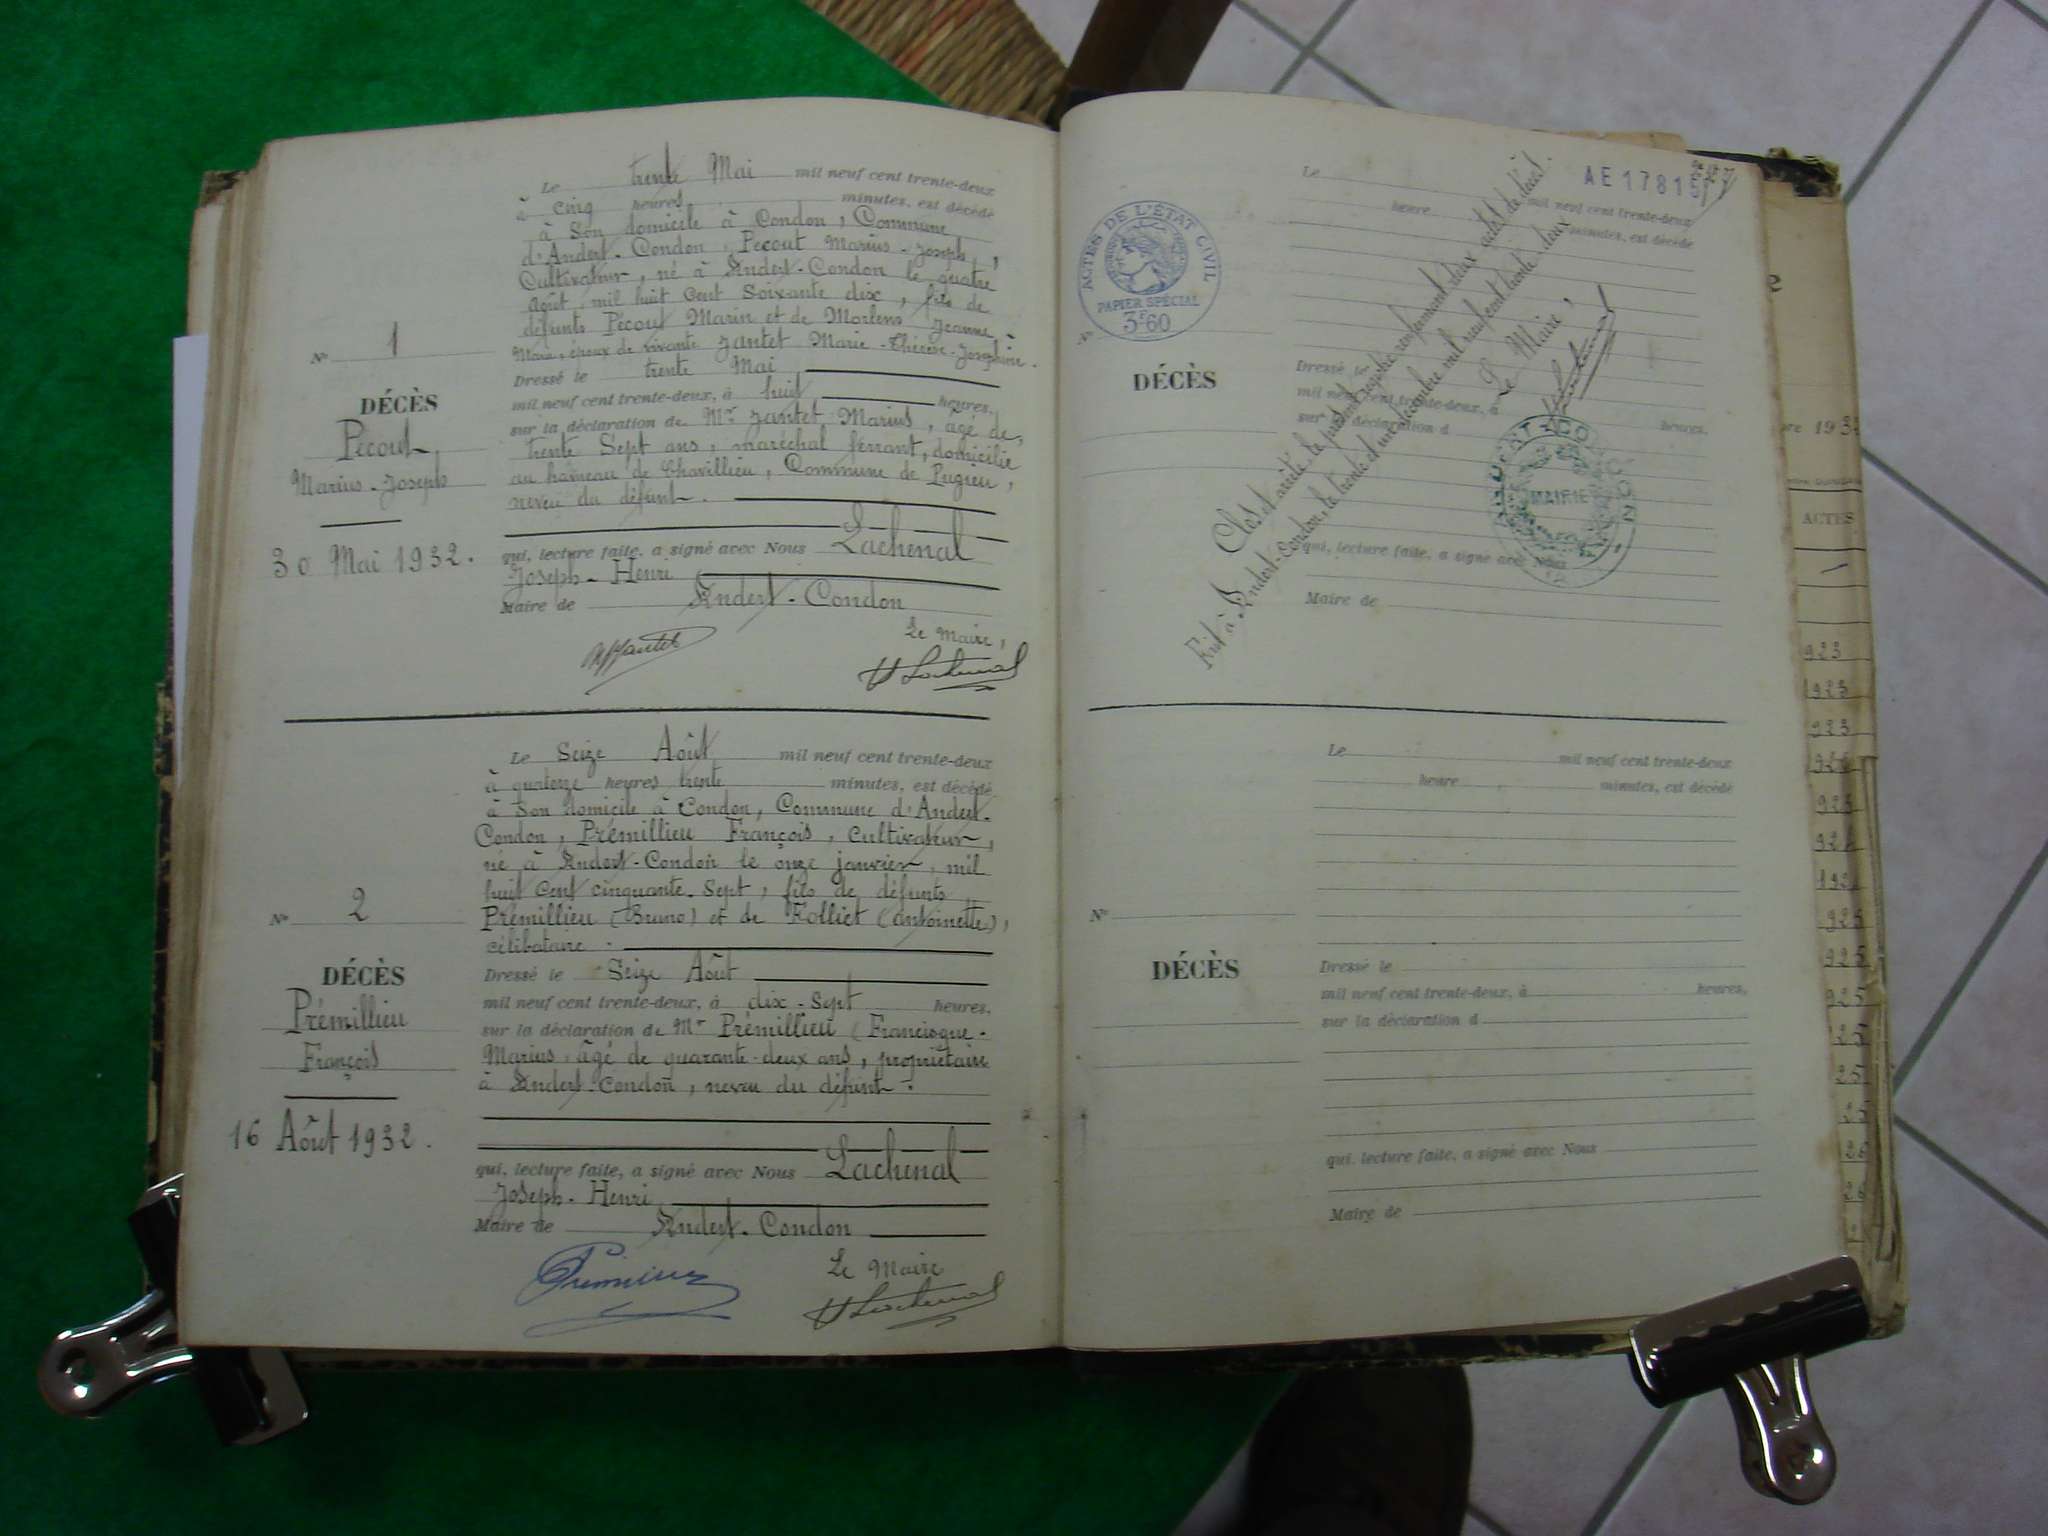 Le trente Mai mil neuf cent trente-deux
à cinq heures minutes, est décédé
à Son domicile à Condon, Commune
d'Andert-Condon, Pecout Marius-Joseph,
Cultivateur, né à Andert-Condon le quatre
Août mil huit Cent Soixante dix, fils de
défunts Pécout Marin et de Morlens Jeanne
Marie, époux de vivante Jantet Marie-Thérèse-Joséphine.
Dressé le trente Mai
mil neuf cent trente-deux, à huit heures,
sur la déclaration de Mr Jantet Marius, âgé de,
trente Sept ans, maréchal ferrant, domicilié
au hameau de Chavillieu, Commune de Pugieu,
neveu du défunt.
qui, lecture faite, a signé avec Nous Lachenal
Joseph-Henri
Maire de Andert-Condon
Le Maire,
H Lachenal
No 1
DÉCÈS
Pécout
Marius-Joseph
30 Mai 1932.
Le Seize Août mil neuf cent trente-deux
à quatorze heures trente minutes, est décédé
à Son domicile à Condon, Commune d'Andert-
Condon, Prémillieu François, Cultivateur,
né à Andert-Condon le onze janvier, mil
huit Cent cinquante-Sept, fils de défunts
Prémillieu (Bruno) et de Folliet (Antoinette),
célibataire.
Dressé le Seize Août
mil neuf cent trente-deux, à dix-Sept heures,
sur la déclaration de Mr Prémillieu (Francisque-
Marius âgé de quarante-deux ans, propriétaire
à Andert-Condon, neveu du défunt.
qui, lecture faite, a signé avec Nous Lachenal
Joseph-Henri
Maire de Andert-Condon
Le Maire
H Lachenal
No 2
DÉCÈS
Prémillieu
François
16 Août 1932.
AE 17815
ACTES DE L'ÉTAT CIVIL
PAPIER SPÉCIAL
3F60
Le mil neuf cent trente-deux
heure minutes, est décédé
DÉCÈS
Dressé le
mil neuf cent trente-deux, à heures,
sur la déclaration d
qui, lecture faite, a signé avec Nous
Maire de
Clos et arrêté le présent registre renfermant deux actes de décès.
Fait à Andert-Condon, le trente et un décembre mil neuf cent trente-deux
Le Maire,
H Lachenal
ANDERT-CONDON
MAIRIE
Le mil neuf cent trente-deux
heure minutes, est décédé
No
DÉCÈS
Dressé le
mil neuf cent trente-deux, à heures,
sur la déclaration d
qui, lecture faite, a signé avec Nous
Maire de
ACTES